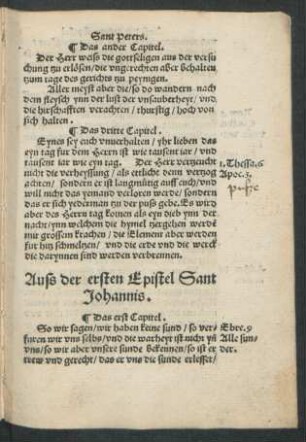 Sant Peters.
¶ Das ander Capitel.
Der Herr weiß die gotseligen auß der versu
chung zu erlösen/die ungerechten aber behalten
zum tage des gerichts zu peyngen.
Aller meyst aber die/so do wandern nach
dem fleysch ynn der lust der unsauberheyt/und
die hirschafften verachten/thurstig/hoch von
sich halten.
¶ Das dritte Capitel.
Eynes sey euch vnuerhalten/yhr lieben das
eyn tag fur dem Herrn ist wie tausent iar/und
tausent iar wie eyn tag. Der Herr vertzeucht 1. Thessa. 6
nicht die verheyssung/als ettlich denn vertzog Apoc. 3.
achten/sondern er ist langmütig auff euch/und
will nicht das yemand verloren werde/sondern
das er sich yederman zu der puß gebe. Es wird
aber des Herrn tag komen als eyn dieb ynn der
nacht/ynn welchem die hymel zergehen werden
mit grossem krachen/die Element aber werden
fur hitz schmeltzen/und die erde und die werck
die darynnen sind werden verbrennen.
Auß der ersten Epistel Sant
Johannis.
¶ Das erst Capitel.
So wir sagen/wir haben keine sund/so ver- Ebre. 9
furen wir uns selbs/und die warheyt ist nicht yn Alle sun-
uns/so wir aber unsere sunde bekennen/so ist er der.
trew und gerecht/das er uns die sunde erlesset/